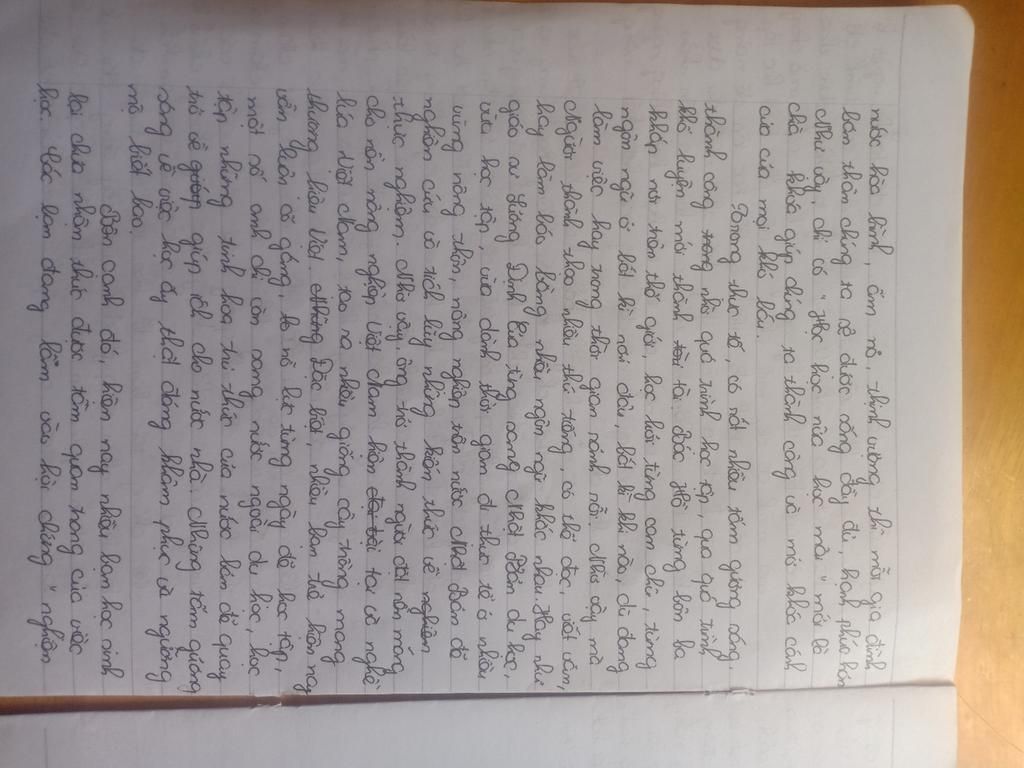 nước hòa bình, ấm no, thịnh vượng thì mỗi gia đình
bản thân chúng ta sẽ được sống đầy đủ, hạnh phúc hơn
Như vậy, chỉ có "Học, học nữa, học mãi" mới là
chìa khóa giúp chúng ta thành công và mở khóa cánh
cửa của mọi khó khăn.
Trong thực tế, có rất nhiều tấm gương sáng
thành công trong nhờ quá trình học tập, qua quá trình
khổ luyện mới thành tài tài. Bác Hồ từng bôn ba
khắp nơi trên thế giới, học hỏi từng con chữ, từng
ngôn ngữ ở bất kì nơi đâu, bất kì khi nào, dù đang
làm việc hay trong thời gian rảnh rỗi. Nhờ vậy mà
Người thành thạo nhiều thứ tiếng, có thể đọc, viết văn,
hay làm báo bằng nhiều ngôn ngữ khác nhau. Hay như
giáo sư Lương Đình Của từng sang Nhật Bản du học,
vừa học tập, vừa dành thời gian đi thực tế ở nhiều
vùng nông thôn, nông nghiệp trên nước Nhật Bản để
nghiên cứu và tích lũy những kiến thức về nghiên
thực nghiệm. Nhờ vậy, ông trở thành người đặt nền móng
cho nền nông nghiệp Việt Nam hiện đại đại tại và nghề
lúa Việt Nam, tạo ra nhiều giống cây trồng mang
thương hiệu Việt. Những Đặc biệt, nhiều bạn trẻ hiện nay
vẫn luôn cố gắng, nỗ lực từng ngày để học tập,
một số anh chị còn sang nước ngoài du học, học
tập những tinh hoa tri thức của nước bạn để quay
trở về giúp giúp ích cho nước nhà. Những tấm gương
sáng về việc học ấy thật đáng khâm phục và ngưỡng
mộ biết bao.
Bên cạnh đó, hiện nay nhiều bạn học sinh
lại chưa nhận thức được tầm quan trọng của việc
học. Các bạn đang lầm vào hội chứng "nghiện